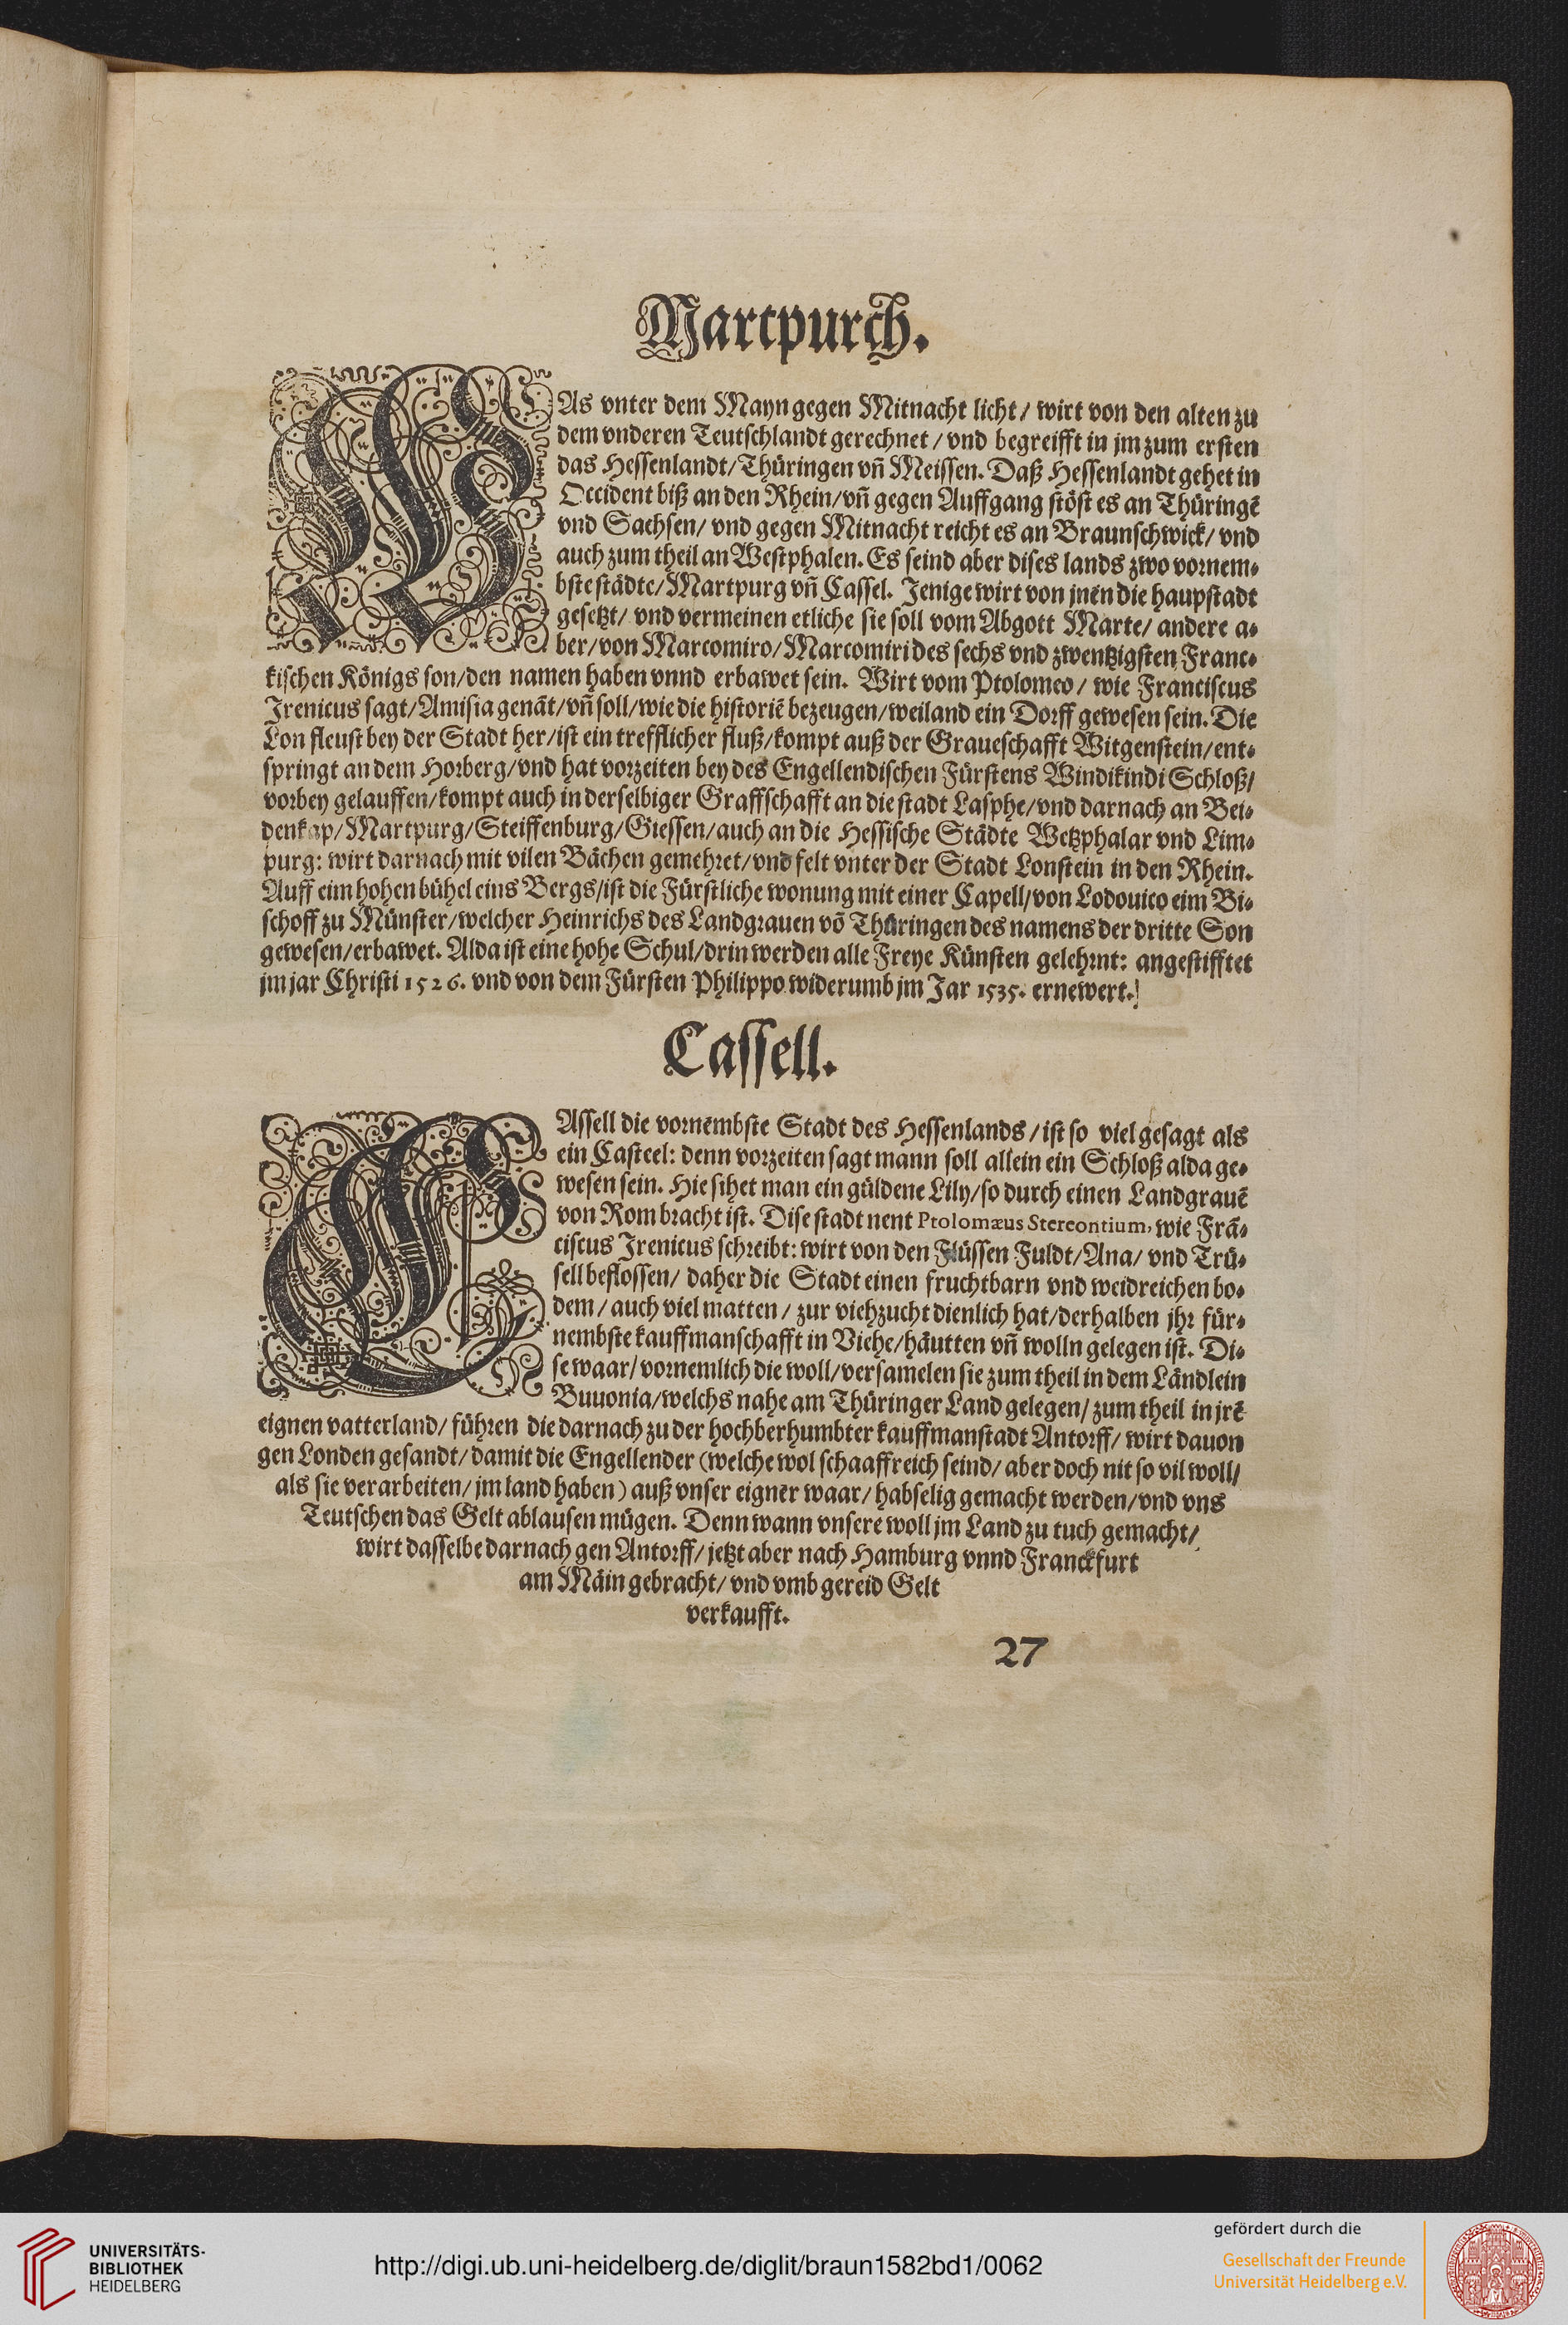 Martpurch.
WAs vnter dem Mayn gegen Mitnacht licht/ wirt von den alten zu
dem vnderen Teutschlandt gerechnet / vnd begreifft in jm zum ersten
das Hessenlandt/Thüringen vn̄ Meissen. Daß Hessenlandt gehet in
Occident biß an den Rhein/vn̄ gegen Auffgang stöst es an Thüringē
vnd Sachsen/ vnd gegen Mitnacht reicht es an Braunschwick/ vnd
auch zum theil an Westphalen. Es seind aber dises lands zwo vornem⸗
bste städte/Martpurg vn̄ Cassel. Jenige wirt von jnen die haupstadt
gesetzt/ vnd vermeinen etliche sie soll vom Abgott Marte/ andere a⸗
ber/von Marcomiro/Marcomiri des sechs vnd zwentzigsten Franc⸗
kischen Königs son/den namen haben vnnd erbawet sein. Wirt vom Ptolomeo / wie Franciscus
Irenicus sagt/Amisia genāt/vn̄ soll/wie die historiē bezeugen/weiland ein Dorff gewesen sein. Die
Lon fleust bey der Stadt her/ist ein trefflicher fluß/kompt auß der Graueschafft Witgenstein/ent⸗
springt an dem Horberg/vnd hat vorzeiten bey des Engellendischen Fürstens Windikindi Schloß/
vorbey gelauffen/kompt auch in derselbiger Graffschafft an die stadt Lasphe/vnd darnach an Bei⸗
denkap/Martpurg/Steiffenburg/Giessen/auch an die Hessische Städte Wetzphalar vnd Lim⸗
purg: wirt darnach mit vilen Bächen gemehret/vnd felt vnter der Stadt Lonstein in den Rhein.
Auff eim hohen bühel eins Bergs/ist die Fürstliche wonung mit einer Capell/von Lodouico eim Bi⸗
schoff zu Münster/welcher Heinrichs des Landgrauen vō Thüringen des namens der dritte Son
gewesen/erbawet. Alda ist eine hohe Schul/drin werden alle Freye Künsten gelehrnt: angestifftet
jm jar Christi 1526. vnd von dem Fürsten Philippo widerumb jm Jar 1535. ernewert.
Cassell.
CAssell die vornembste Stadt des Hessenlands / ist so viel gesagt als
ein Casteel: denn vorzeiten sagt mann soll allein ein Schloß alda ge⸗
wesen sein. Hie sihet man ein güldene Lily/so durch einen Landgrauē
von Rom bracht ist. Dise stadt nent Ptolomæus Stereontium, wie Frā⸗
ciscus Irenicus schreibt: wirt von den Flüssen Fuldt/Ana/ vnd Trü⸗
sell beflossen/ daher die Stadt einen fruchtbarn vnd weidreichen bo⸗
dem / auch viel matten / zur viehzucht dienlich hat/derhalben jhr für⸗
nembste kauffmanschafft in Viehe/häutten vn̄ wolln gelegen ist. Di⸗
se waar/ vornemlich die woll/versamelen sie zum theil in dem Ländlein
Buuonia/welchs nahe am Thüringer Land gelegen/ zum theil in jrē
eignen vatterland/ führen die darnach zu der hochberhumbter kauffmanstadt Antorff/ wirt dauon
gen Londen gesandt/ damit die Engellender (welche wol schaaffreich seind/ aber doch nit so vil woll/
als sie verarbeiten/ jm land haben) auß vnser eigner waar/ habselig gemacht werden/vnd vns
Teutschen das Gelt ablausen mügen. Denn wann vnsere woll jm Land zu tuch gemacht/
wirt dasselbe darnach gen Antorff/ jetzt aber nach Hamburg vnnd Franckfurt
am Mäin gebracht/ vnd vmb gereid Gelt
verkaufft.
27
UNIVERSITÄTS-
BIBLIOTHEK
HEIDELBERG
http://digi.ub.uni-heidelberg.de/diglit/braun1582bd1/0062
gefördert durch die
Gesellschaft der Freunde
Universität Heidelberg e.V.